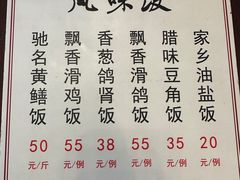 风味饭
驰名黄鳝饭
50
元/斤
飘香滑鸡饭
55
元/例
香葱鸽肾饭
38
元/例
飘香滑鸽饭
55
元/例
腊味豆角饭
35
元/例
家乡油盐饭
20
元/例